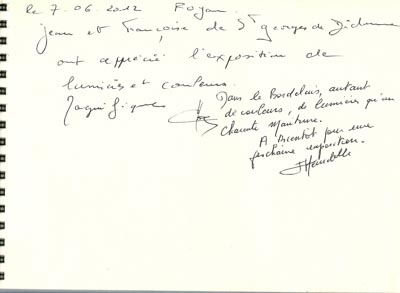 le 7.06.2012 Royan.
Jean et Françoise de St georges de Didonne
ont apprécié l'exposition de
lumières et couleurs.
Dans le Bordelais, autant
de couleurs, de lumières qu'en
Charente Maritime.
A Bientôt pour une
prochaine exposition.